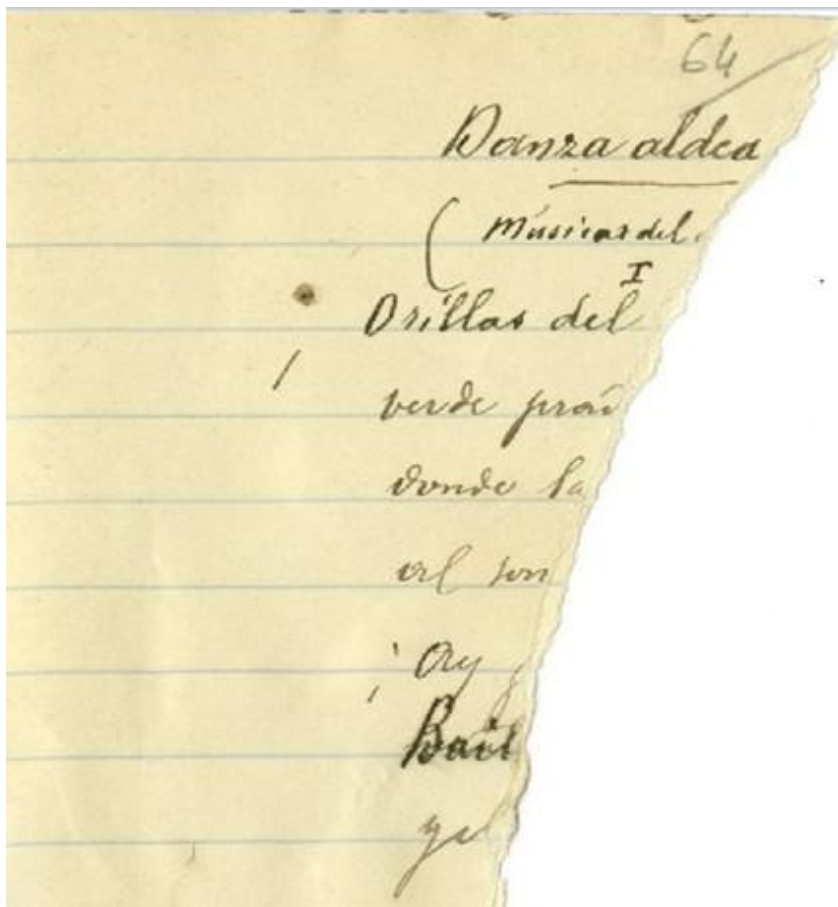 64
Danza aldea
(Músicas del
I
Orillas del
verde prai
donde la
al son
¡Ay
Bail